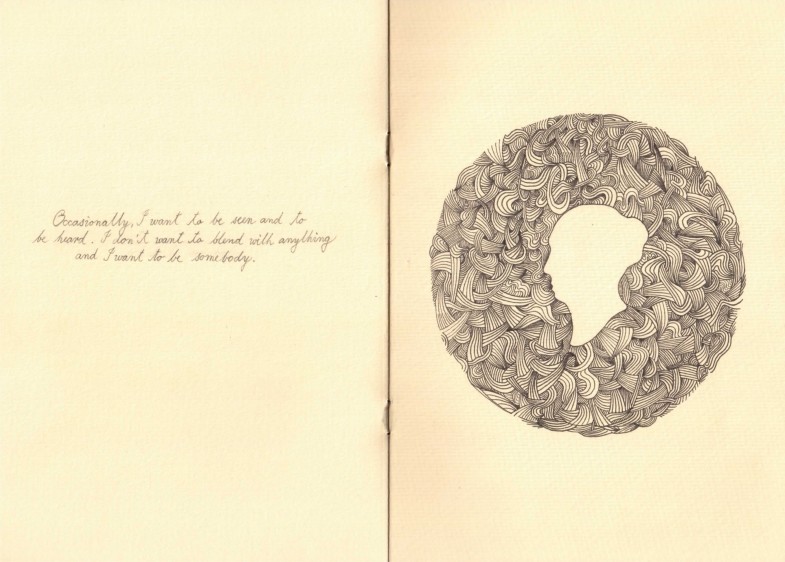 Occasionally, I want to be seen and to
be heard. I don't want to blend with anything
and I want to be somebody.